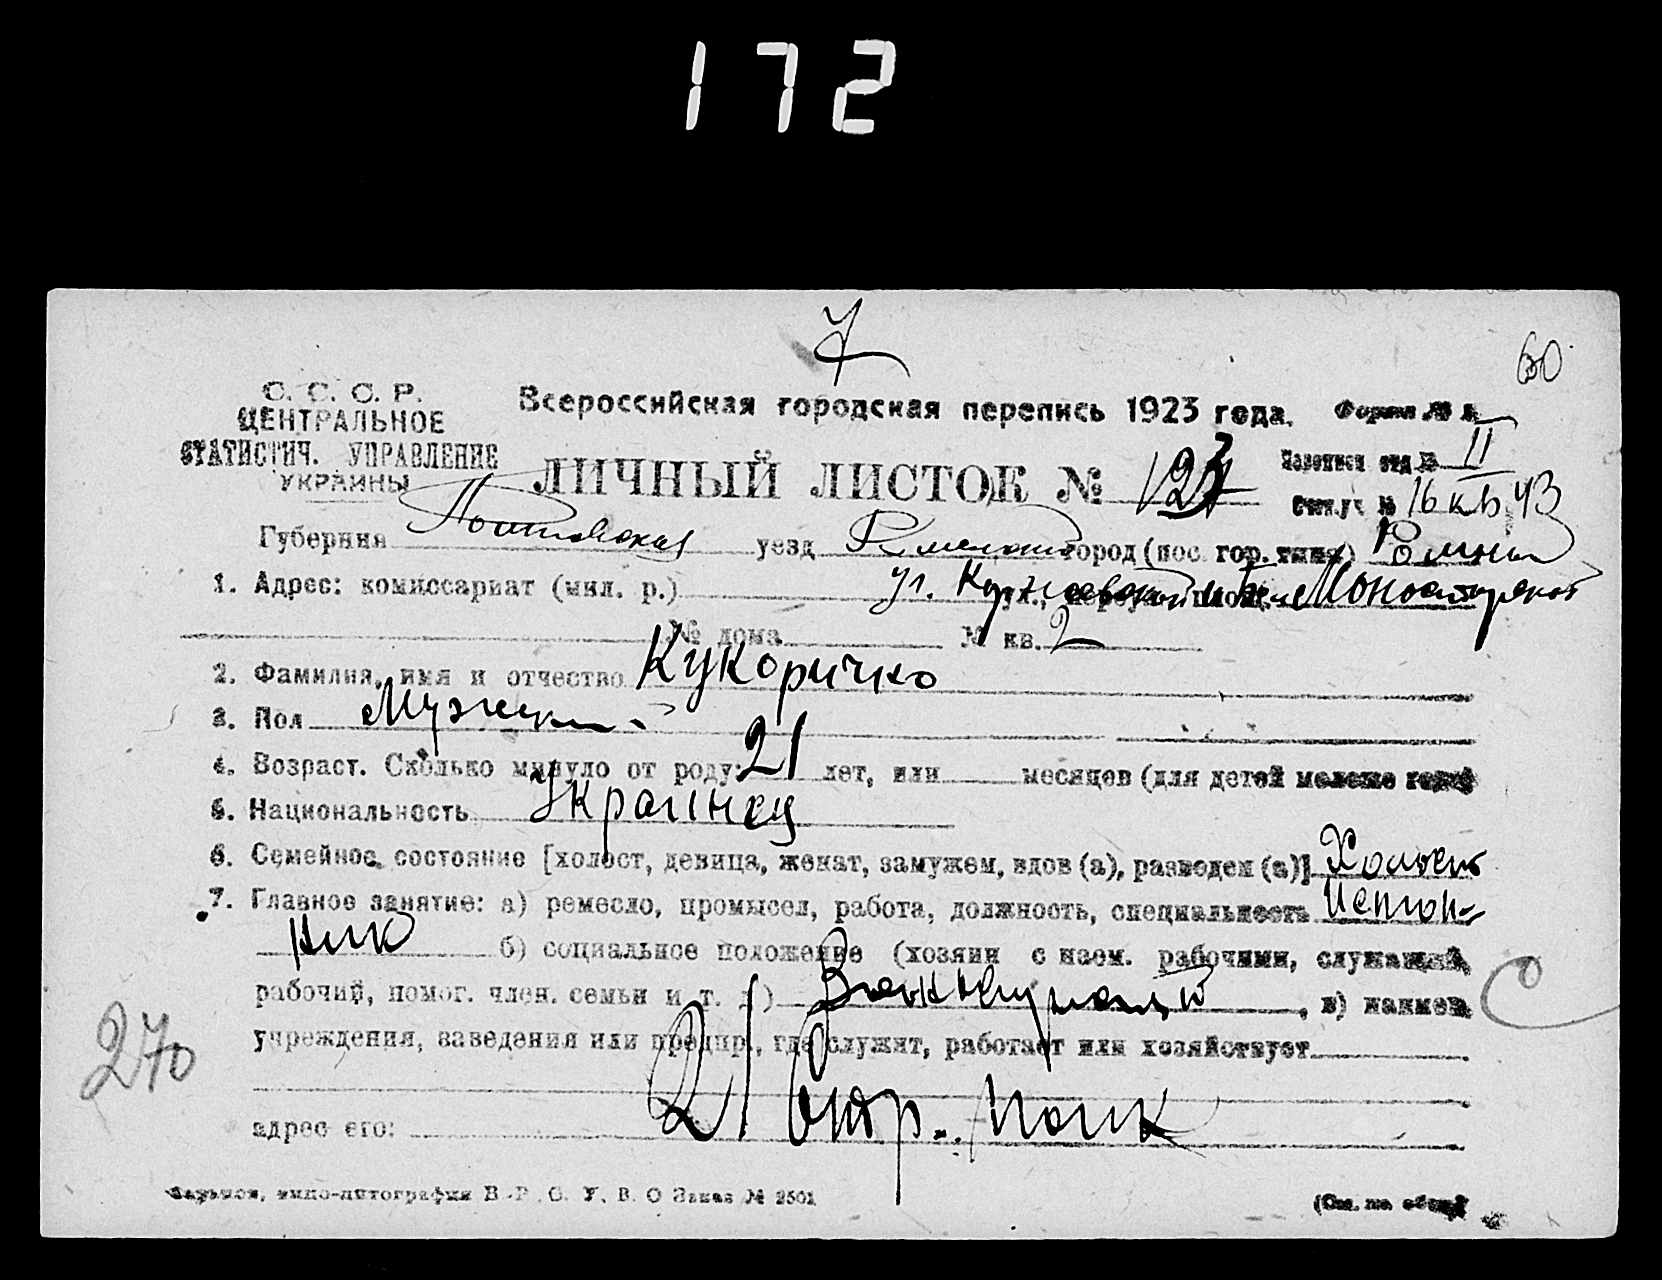 172
60
С. С. С. Р.
ЦЕНТРАЛЬНОЕ
СТАТИСТИЧ. УПРАВЛЕНИЕ
УКРАИНЫ
Всероссийская городская перепись 1923 года.
Форма №
ЛИЧНЫЙ ЛИСТОК №
отд. № II
№ 16 кв. 43
Губерния Полтавская уезд город (пос. гор. типа) Ромны
1. Адрес: комиссариат (мил. р.) ул.
№ дома № кв. 2
2. Фамилия, имя и отчество Кукоричко
3. Пол Мужск.
4. Возраст. Сколько минуло от роду: 21 лет, или месяцев (для детей моложе года)
5. Национальность Украінец
6. Семейное состояние [холост, девица, женат, замужем, вдов (а), разведен (а)] Холост
7. Главное занятие: а) ремесло, промысел, работа, должность, специальность
б) социальное положение (хозяин с наем. рабочими, служащий,
рабочий, помог. член. семьи и т. д.) , в) наимен.
учреждения, заведения или предпр., где служит, работает или хозяйствует
21 полк
адрес его:
270
Харьков, типо-литография В. Р. С. У. В. О Заказ № 2501
(См. на обор.)